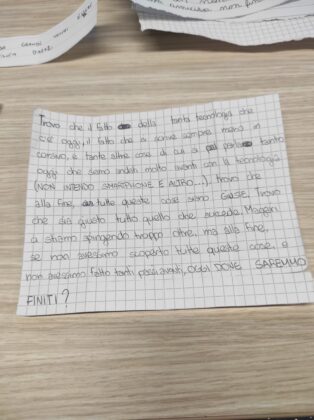 Trovo che il fatto della tanta tecnologia che
c'è oggi, il fatto che si scrive sempre meno in
corsivo, e tante altre cose di cui si parla tanto
oggi che siamo andati molto avanti con la tecnologia
(NON INTENDO SMARTPHONE E ALTRO...), trovo che
alla fine, tutte queste cose siano GIUSTE. Trovo
che sia giusto tutto quello che succede. Magari
ci stiamo spingendo troppo oltre, ma alla fine,
se non avessimo scoperto tutte queste cose, e
non avessimo fatto tanti passi avanti, OGGI DOVE SAREMMO
FINITI?